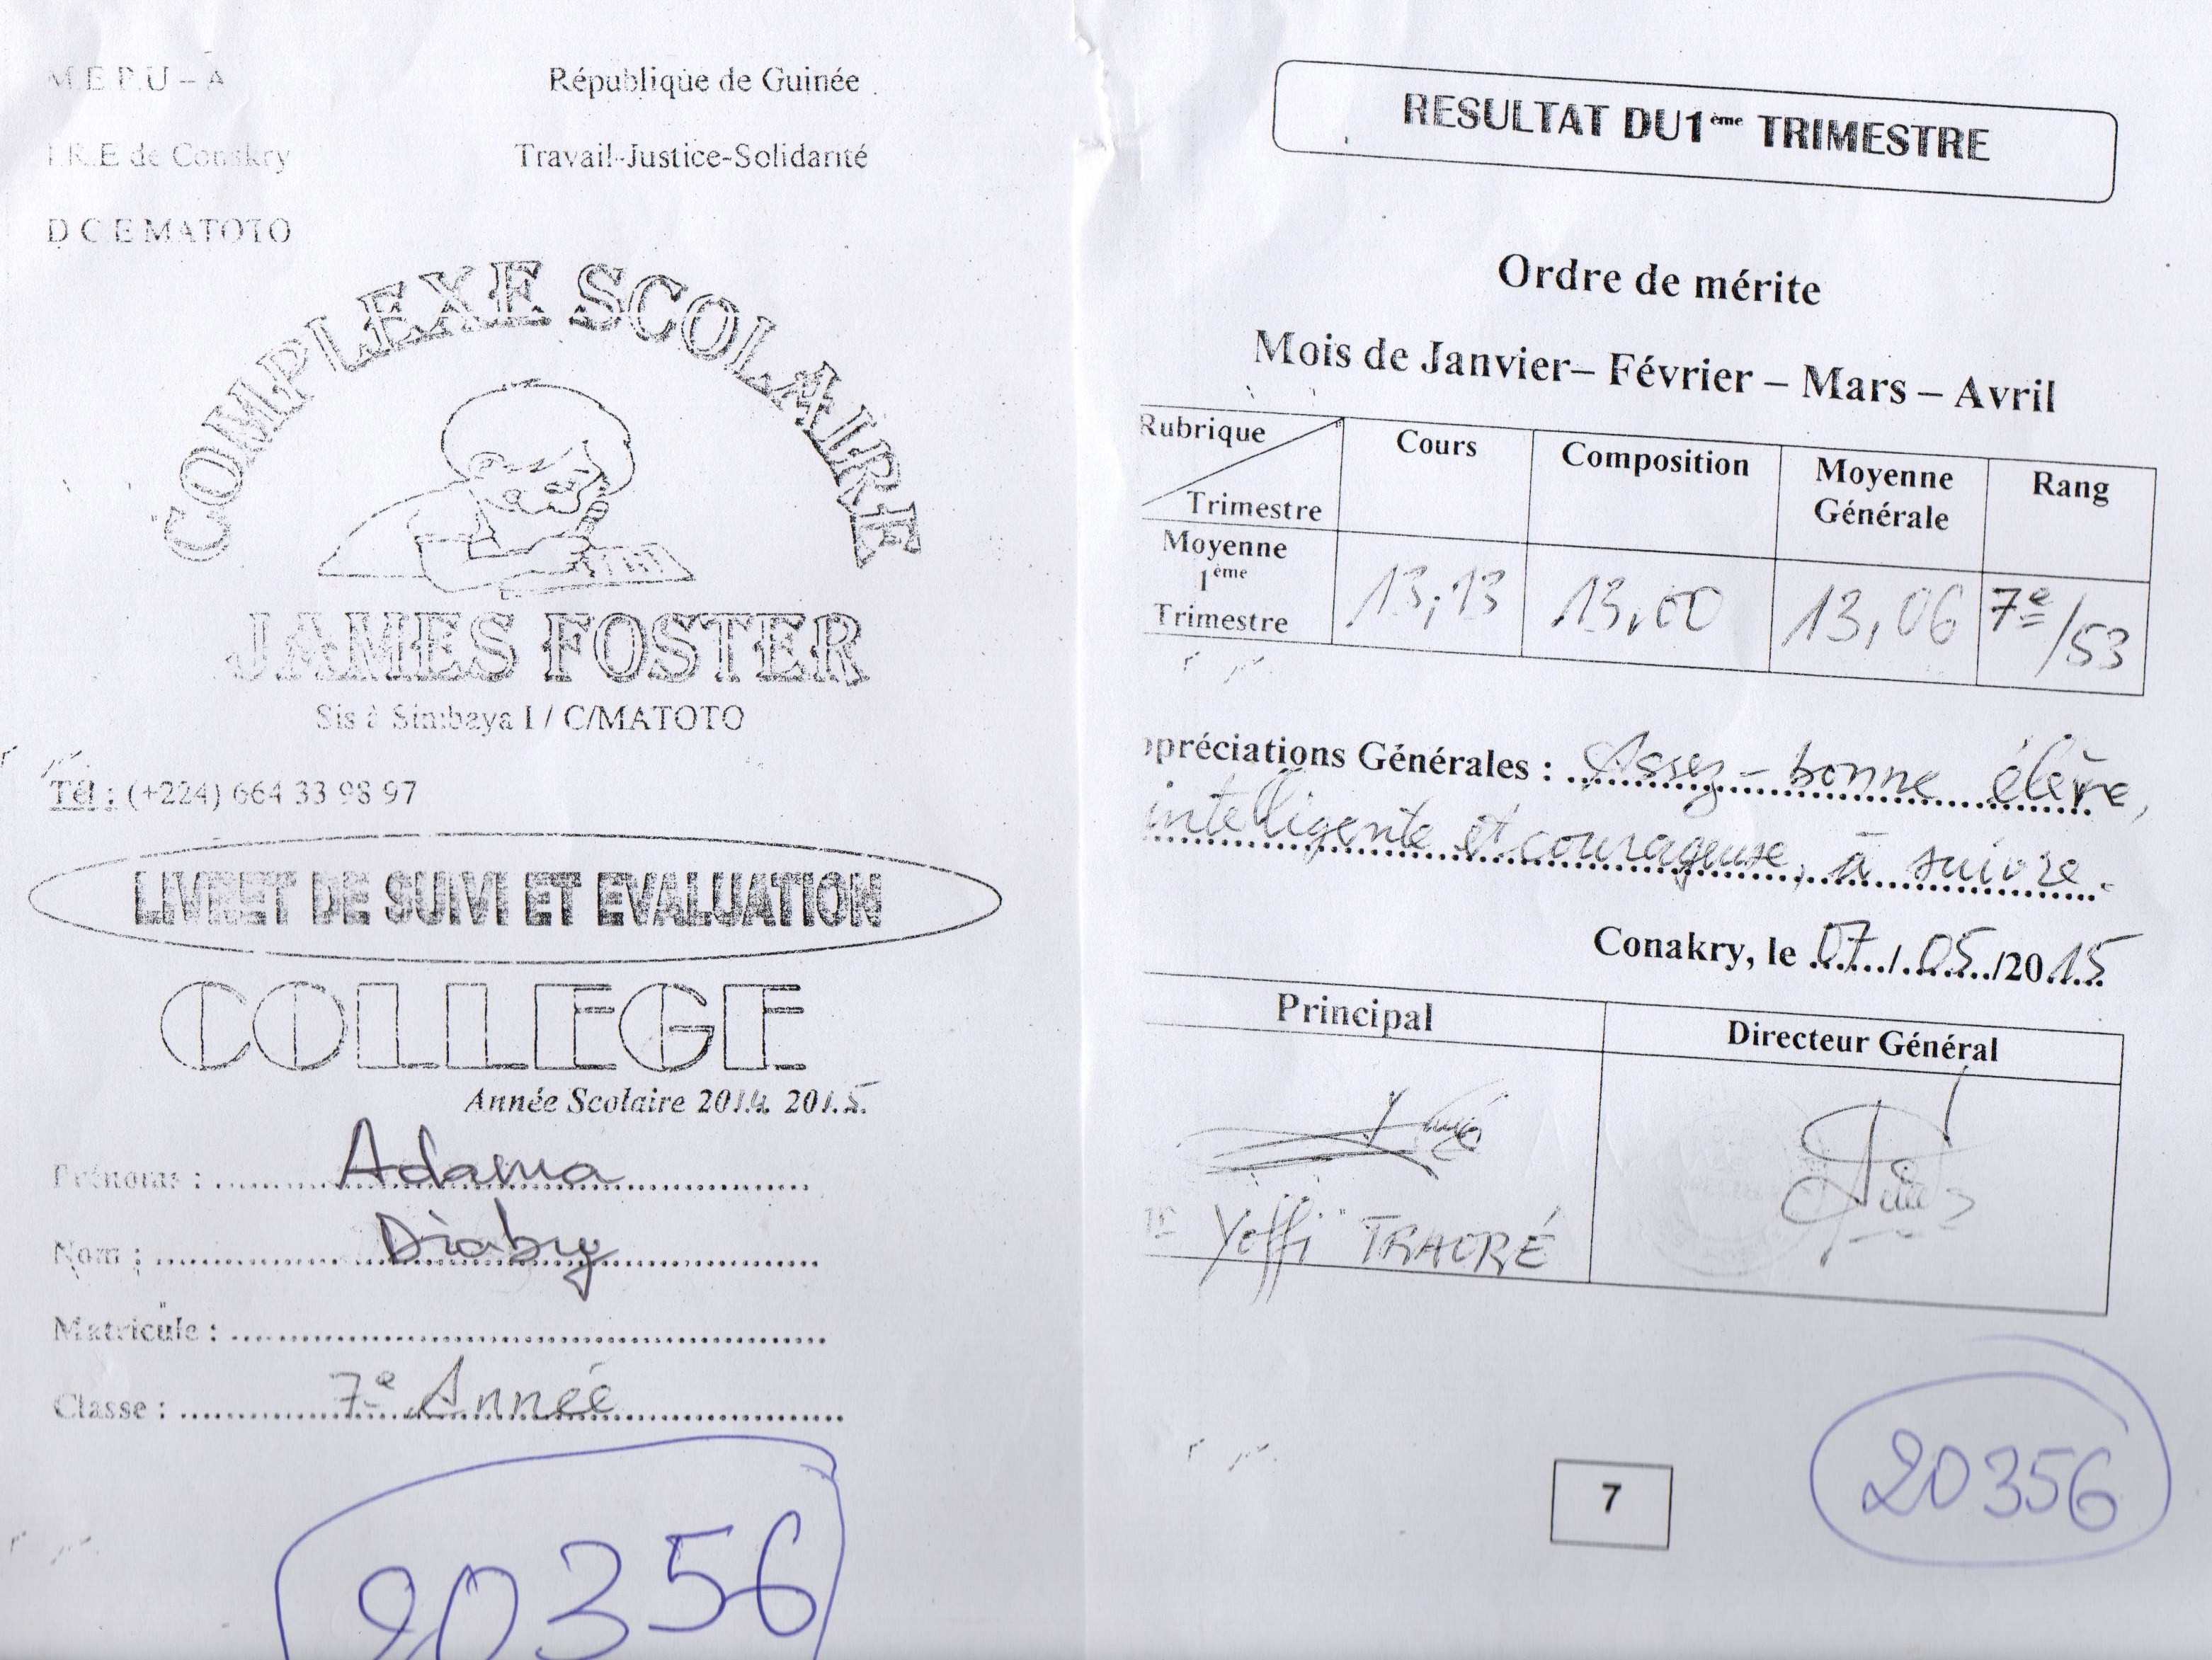 M.E P.U – A
République de Guinée
I.R.E de Conakry
Travail-Justice-Solidarité
D C E MATOTO
COMPLEXE SCOLAIRE
JAMES FOSTER
Sis à Simbaya I / C/MATOTO
Tél : (+224) 664 33 98 97
LIVRET DE SUIVI ET EVALUATION
COLLEGE
Année Scolaire 2014 2015
Prénoms : Adama
Nom : Diaby
Matricule :
Classe : 7e Année
20356
RESULTAT DU 1ème TRIMESTRE
Ordre de mérite
Mois de Janvier– Février – Mars – Avril
Rubrique
Trimestre
Cours
Composition
Moyenne Générale
Rang
Moyenne 1ème Trimestre
13,13
13,00
13,06
7e/53
ppréciations Générales : Assez-bonne élève,
intelligente et courageuse, à suivre.
Conakry, le 07/05/2015
Principal
Directeur Général
Yoffi TRAORÉ
7
20356